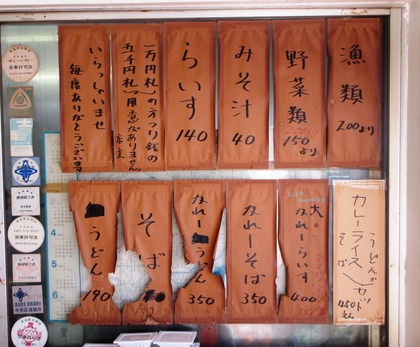 漁類
200より
野菜類
150より
みそ汁
40
らいす
140
一万円札の方つり銭の
五千円札用意がありません
店主
いらっしゃいませ
毎度ありがとうございます
カレーライス
うどんが
そば
カツ
450
大かれーらいす
400
かれーそば
350
かれーうどん
350
そば
うどん
190